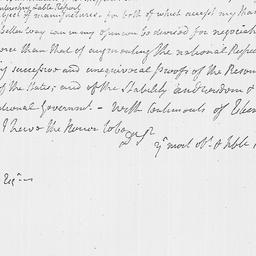 subject of manufactures. for both of which accept my than
better way can in my opinion be devised for negociat
ore than that of augmenting the national Respe
successive and unequivocal proofs of the Resour
of the States; and of the stability and wisdom &
ational Government – With Sentiments of Estee
I have the Honor to be Dr Sir
yr most Ob. & Hble
Esqr